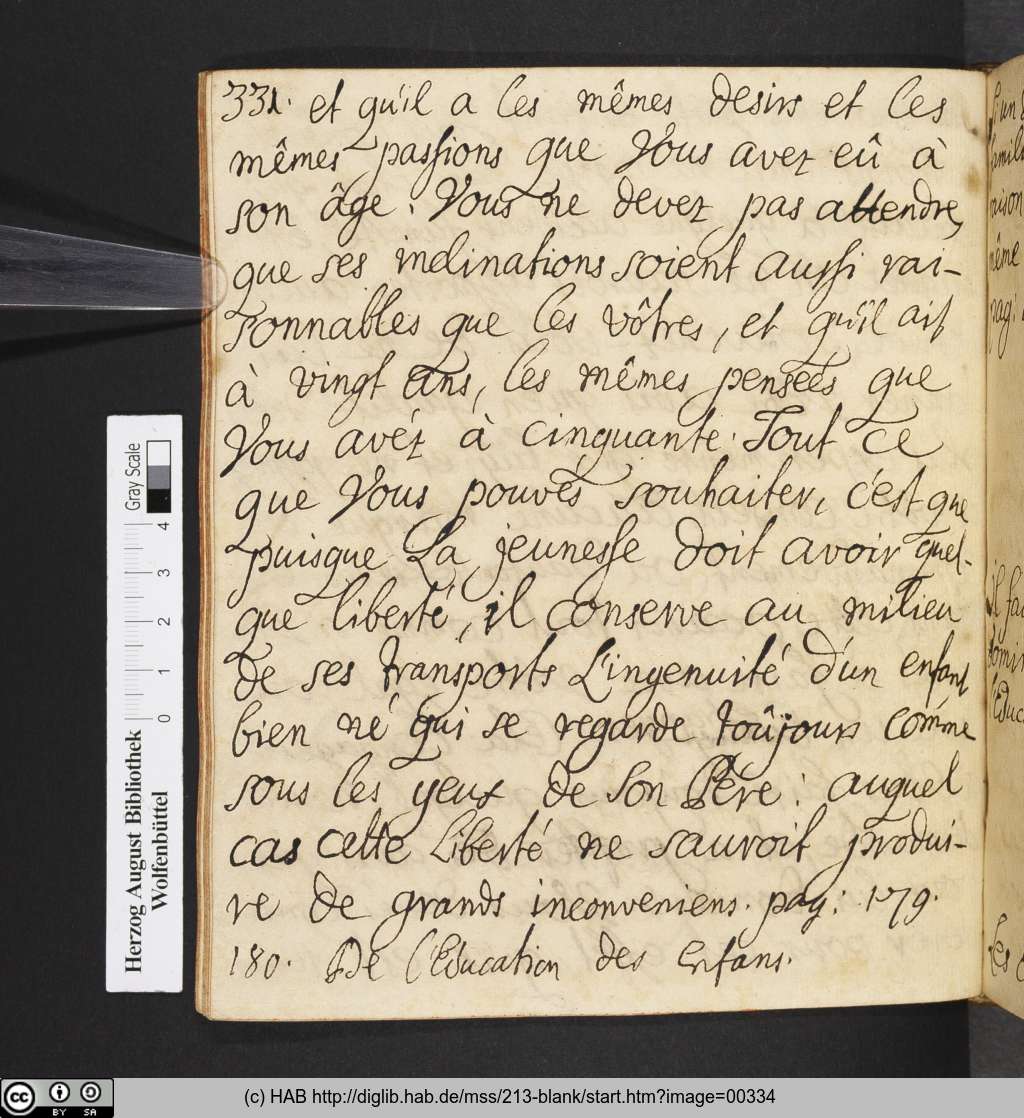 331. et qu'il a les mêmes desirs et les
mêmes passions que Vous avez eû à
son âge. Vous ne devez pas attendre,
que ses inclinations soient aussi rai-
sonnables que les vôtres, et qu'il ait
à vingt ans, les mêmes pensées que
Vous avéz à cinquante. Tout ce
que Vous pouvés souhaiter, c'est que
puisque La jeunesse doit avoir quel-
que liberté, il conserve au milieu
de ses transports L'ingenuité d'un enfant
bien né qui se regarde toûjours comme
sous les yeux de son Père: auquel
cas cette liberté ne sauroit produi-
re de grands inconveniens. pag: 179.
180. De l'Education des Enfans.
Herzog August Bibliothek
Wolfenbüttel
Gray Scale
0 1 2 3 4
cc BY SA
(c) HAB http://diglib.hab.de/mss/213-blank/start.htm?image=00334